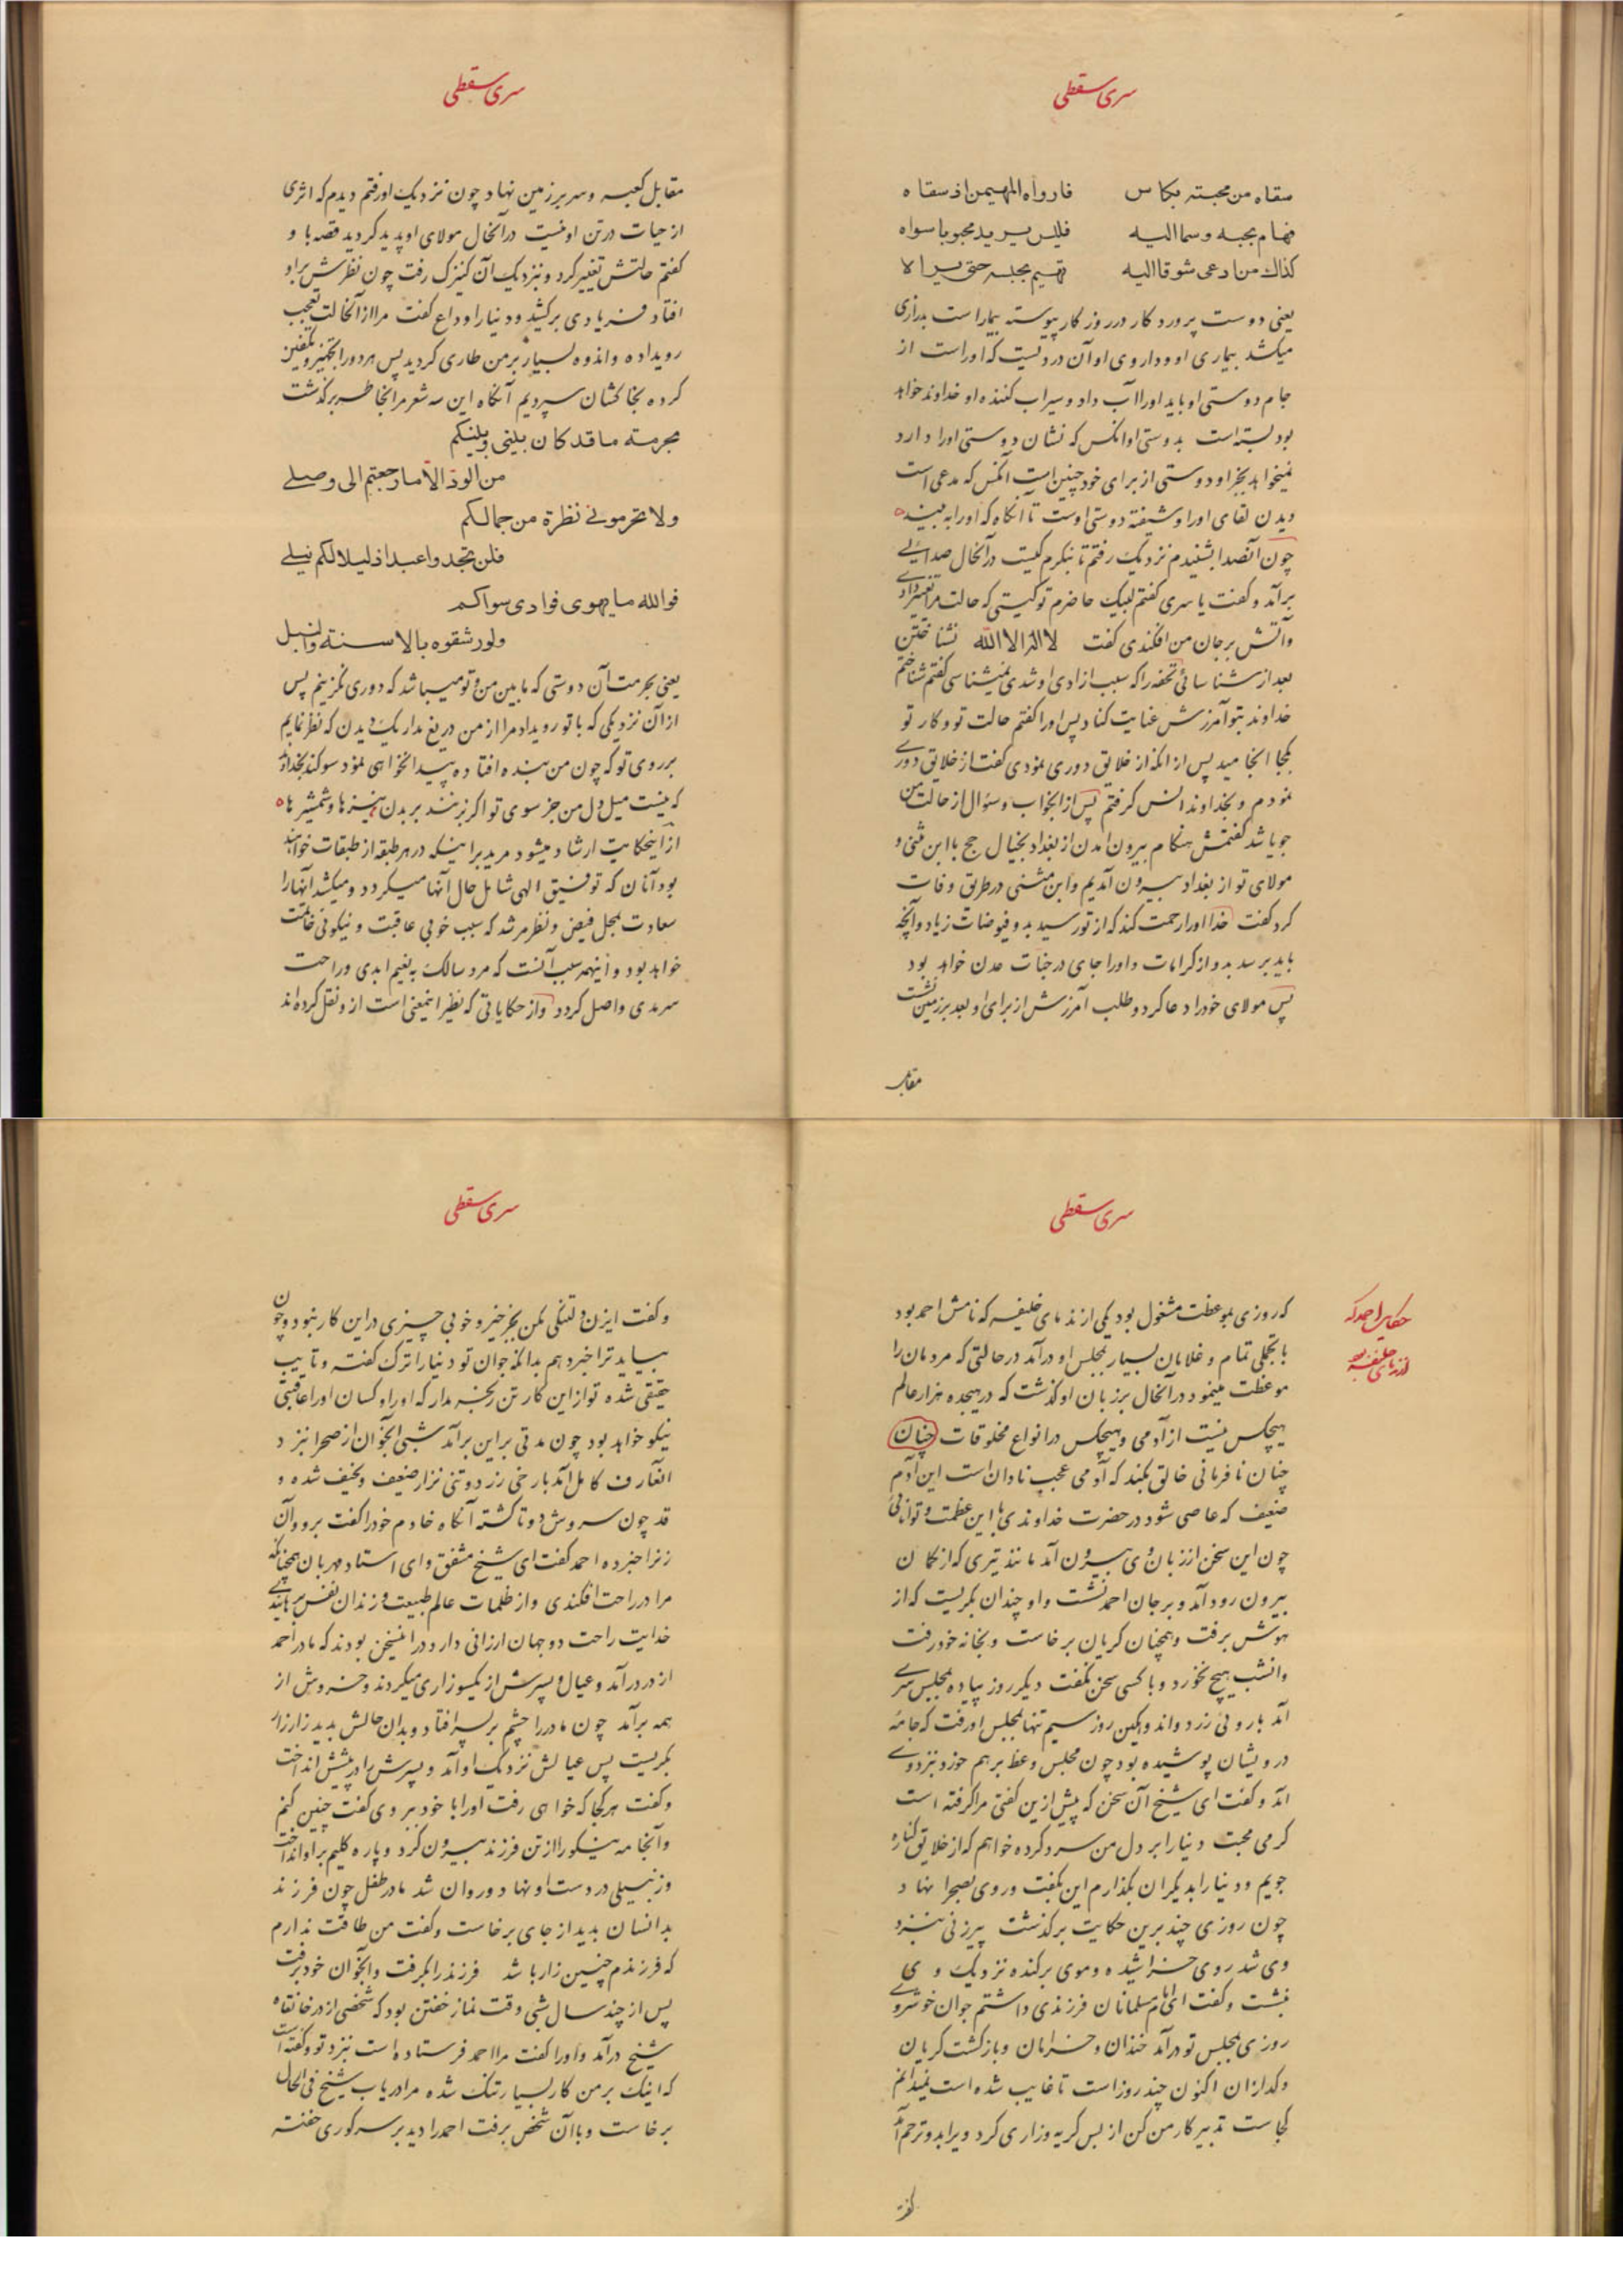 سری سقطی
سقاه من محبته بکاس فارواه المهیمن اذ سقاه
فهام بحبه وسما الیه فلیس یرید محبوبا سواه
کذاک من ادعی شوقا الیه یهیم بحبه حتی یراه
یعنی دوست پروردکار در روزکار پیوسته بیمار است بدرازی
میکشد بیماری او و داروی او آن دردیست که اوراست از
جام دوستی او باید اورا آب داد و سیراب کننده او خداوند خواهد
بود بسته است بدوستی او انکس که نشان دوستی اورا دارد
نمیخواهد بجز او دوستی از برای خود چنین است آنکس که مدعی است
دیدن لقای اورا و شیفته دوستی اوست تا آنکاه که اورا به بیند
چون آنصدا بشنیدم نزدیک رفتم تا بنکرم کیست در آنحال صدائی
برآمد و کفت یا سری کفتم لبیک حاضرم تو کیستی که حالت مرا تغییر دادی
و آتش بر جان من افکندی کفت لا اله الا الله نشناختن
بعد از شناسائی تحفه را که سبب ازادی او شدی نمیشناسی کفتم شناختم
خداوند بتو آمرزش عنایت کناد پس اورا کفتم حالت تو و کار تو
بکجا انجامید پس از انکه از خلایق دوری نمودی کفت از خلایق دوری
نمودم و بخداوند انس کرفتم پس از انجواب و سؤال از حالت من
جویا شد کفتمش هنکام بیرون امدن از بغداد بخیال حج با ابن مثنی و
مولای تو از بغداد بیرون آمدیم و ابن مثنی در طریق وفات
کرد کفت خدا اورا رحمت کند که از تو رسید بدو فیوضات زیاد و آنچه
باید برسد بدو از کرامات و اورا جای در جنات عدن خواهد بود
پس مولای خود را دعا کرد و طلب آمرزش از برای او بعد بر زمین نشست
مقابل
سری سقطی
مقابل کعبه و سر بر زمین نهاد چون نزدیک او رفتم دیدم که اثری
از حیات در تن او نیست در آنحال مولای او پدید کردید قصه با و
کفتم حالتش تغییر کرد و نزدیک آن کنیزک رفت چون نظرش بر او
افتاد فریادی برکشید و دنیا را وداع کفت مرا از آنحالت تعجب
رویداده و اندوه بسیار بر من طاری کردید پس هر دو را تجهیز و تکفین
کرده بخاکشان سپردیم آنکاه این سه شعر مرا بخاطر برکذشت
بحرمته ما قد کان بینی و بینکم
من الود الا ما رجعتم الی وصلی
ولا تحرمونی نظرة من جمالکم
فلن تجدوا عبدا ذلیلا لکم نیلی
فوالله ما یهوی فوادی سواکم
ولو رشقوه بالاسنة والنبل
یعنی بحرمت آن دوستی که ما بین من و تو میباشد که دوری نکزینم پس
از آن نزدیکی که با تو رویداد مرا از من دریغ مدار یک دیدن که نظر نمایم
بر روی تو که چون من بنده افتاده پیدا نخواهی نمود سوکند بخداوند
که نیست میل دل من جز سوی تو اکر بزنند بر بدن نیزها و شمشیرها
از اینحکایت ارشاد میشود مرید بر اینکه در هر طبقه از طبقات خواهند
بود آنان که توفیق الهی شامل حال آنها میکردد و میکشد آنها را
سعادت بمحل فیض و نظر مرشد که سبب خوبی عاقبت و نیکوئی خاتمت
خواهد بود و اینهم سبب آنست که مرد سالک به نعیم ابدی و راحت
سرمدی واصل کردد و از حکایاتی که نظیر اینمعنی است از و نقل کرده اند
سری سقطی
حکایت احمد که
از ندمای خلیفه بود
که روزی بموعظت مشغول بود یکی از ندمای خلیفه که نامش احمد بود
با تجملی تمام و غلامان بسیار بمجلس او درآمد در حالتی که مردمان را
موعظت مینمود در آنحال بر زبان او کذشت که در هیجده هزار عالم
هیچکس نیست از آدمی و هیچکس در انواع مخلوقات چنان
چنان نافرمانی خالق نکند که آدمی عجب نادان است این آدم
ضعیف که عاصی شود در حضرت خداوندی با این عظمت و توانائی
چون این سخن از زبان وی بیرون آمد مانند تیری که از کمان
بیرون رود آمد و بر جان احمد نشست و او چندان بکریست که از
هوش برفت و همچنان کریان برخاست و بخانه خود رفت
و انشب هیچ نخورد و با کسی سخن نکفت دیکر روز پیاده بمجلس سری
آمد با روئی زرد و اندوهکین روز سیم تنها بمجلس او رفت که جامه
درویشان پوشیده بود چون مجلس وعظ برهم خورد نزد وی
آمد و کفت ای شیخ آن سخن که پیش ازین کفتی مرا کرفته است
کرمی محبت دنیا را بر دل من سرد کرده خواهم که از خلایق کناره
جویم و دنیا را بدیکران بکذارم این بکفت و روی بصحرا نهاد
چون روزی چند برین حکایت برکذشت پیرزنی بنزد
وی شد روی خراشیده و موی برکنده نزدیک وی
نشست و کفت ای امام مسلمانان فرزندی داشتم جوان خوشروی
روزی بمجلس تو درآمد خندان و خرامان و بازکشت کریان
و کدازان اکنون چند روز است تا غایب شده است نمیدانم
کجاست تدبیر کار من کن از بس کریه و زاری کرد ویرا بدو ترحم آمد
کفت
سری سقطی
و کفت ایزن دلتنکی مکن بجز خیر و خوبی چیزی در این کار نبود و چون
بیاید ترا خبر دهم بدانکه جوان تو دنیا را ترک کفته و تایب
حقیقی شده تو از این کار تن رنجه مدار که اورا و کسان اورا عاقبتی
نیکو خواهد بود چون مدتی بر این برآمد شبی آنجوان از صحرا بنزد
انعارف کامل آمد با رخی زرد و تنی نزار ضعیف و نحیف شده و
قد چون سروش دوتا کشته آنکاه خادم خود را کفت برو و آن
زنرا خبر ده احمد کفت ای شیخ مشفق و ای استاد مهربان همچنانکه
مرا در راحت افکندی و از ظلمات عالم طبیعت و زندان نفس برهانیدی
خدایت راحت دو جهان ارزانی دارد در اینسخن بودند که مادر احمد
از در درآمد و عیال و پسرش از یکسو زاری میکردند و خروش از
همه برآمد چون مادر را چشم بر پسر افتاد و بدان حالش بدید زار زار
بکریست پس عیالش نزدیک او آمد و پسرش را در پیشش انداخت
و کفت هر کجا که خواهی رفت اورا با خود ببر وی کفت چنین کنم
و آنجامه نیکو را از تن فرزند بیرون کرد و پاره کلیم بر او انداخت
و زنبیلی در دست او نهاد و روان شد مادر طفل چون فرزند
بدانسان بدید از جای برخاست و کفت من طاقت ندارم
که فرزندم چنین زار باشد فرزند را بکرفت و انجوان خود برفت
پس از چند سال شبی وقت نماز خفتن بود که شخصی از در خانقاه
شیخ درآمد و اورا کفت مرا احمد فرستاده است بنزد تو و کفته است
که اینک بر من کار بسیار تنک شده مرا دریاب شیخ فی الحال
برخاست و با آن شخص برفت احمد را دید بر سر کوری خفته